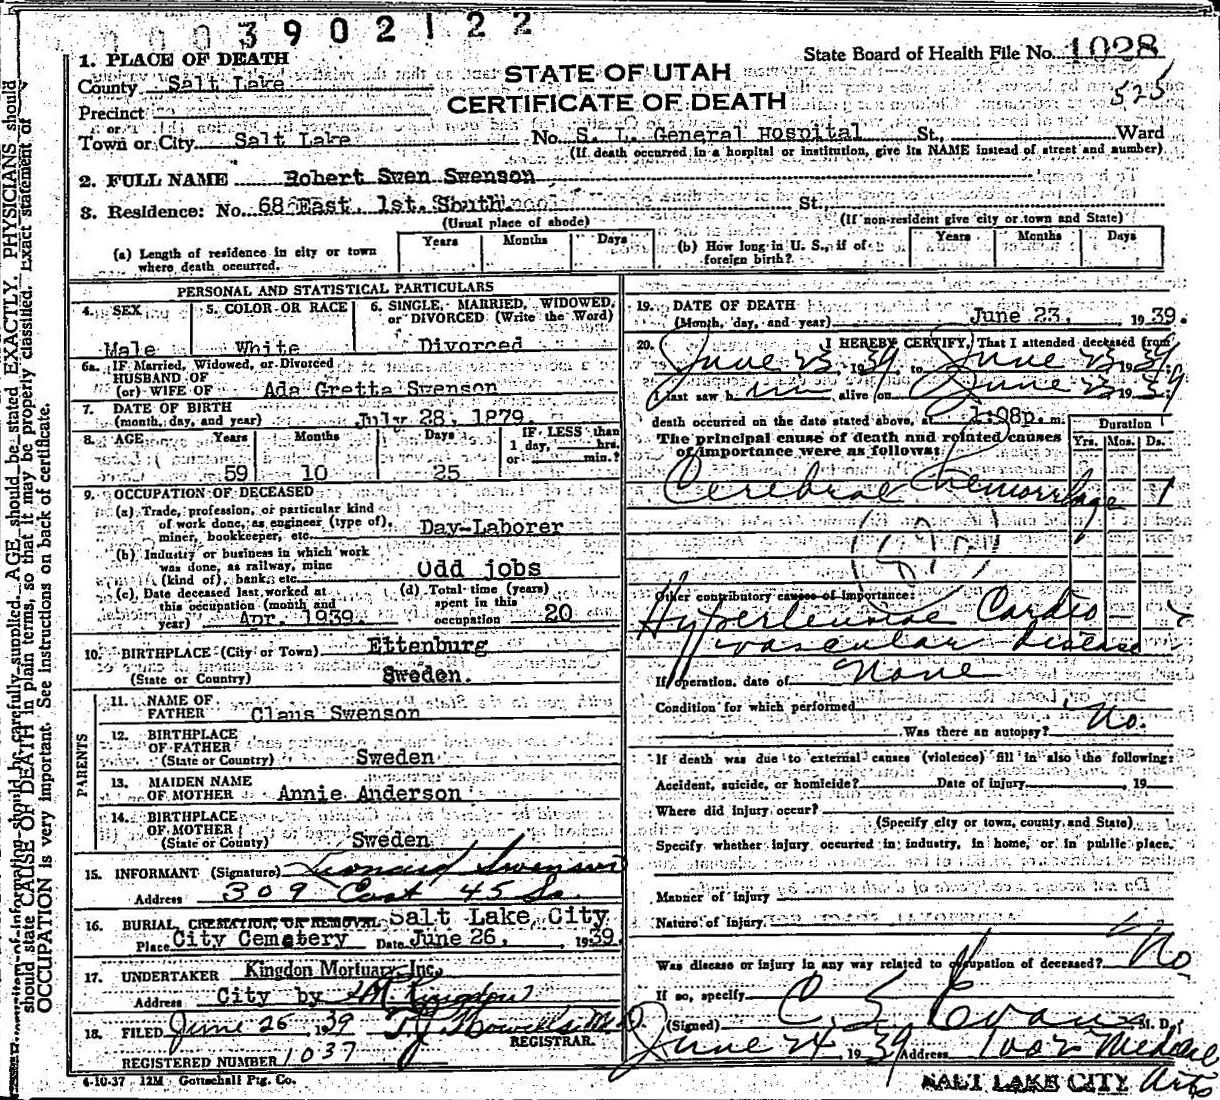 3902122
State Board of Health File No. 1028
525
STATE OF UTAH
CERTIFICATE OF DEATH
1. PLACE OF DEATH
County Salt Lake
Precinct
or
Town or City Salt Lake No. S. L. General Hospital St., Ward
(If death occurred in a hospital or institution, give its NAME instead of street and number)
2. FULL NAME Robert Swen Swenson
3. Residence: No. 68 East. 1st. South St.,
(Usual place of abode) (If non-resident give city or town and State)
(a) Length of residence in city or town where death occurred. Years Months Days
(b) How long in U. S., if of foreign birth? Years Months Days
PERSONAL AND STATISTICAL PARTICULARS
4. SEX Male
5. COLOR OR RACE White
6. SINGLE, MARRIED, WIDOWED, or DIVORCED (Write the Word) Divorced
6a. IF Married, Widowed, or Divorced
HUSBAND OF
(or) WIFE OF Ada Gretta Swenson
7. DATE OF BIRTH
(month, day, and year) July 28, 1879.
8. AGE Years 59 Months 10 Days 25 IF LESS than 1 day, hrs. or min.?
9. OCCUPATION OF DECEASED
(a) Trade, profession, or particular kind of work done, as engineer (type of), miner, bookkeeper, etc. Day-Laborer
(b) Industry or business in which work was done, as railway, mine (kind of), bank, etc. Odd jobs
(c) Date deceased last worked at this occupation (month and year) Apr. 1939.
(d) Total time (years) spent in this occupation 20
10. BIRTHPLACE (City or Town) Ettenburg
(State or Country) Sweden.
PARENTS
11. NAME OF FATHER Claus Swenson
12. BIRTHPLACE OF FATHER
(State or Country) Sweden
13. MAIDEN NAME OF MOTHER Annie Anderson
14. BIRTHPLACE OF MOTHER
(State or Country) Sweden
15. INFORMANT (Signature) Leonard Swenson
Address 309 East 45 So.
16. BURIAL, CREMATION, OR REMOVAL Salt Lake City
Place City Cemetery Date June 26, 1939.
17. UNDERTAKER Kingdon Mortuary Inc.
Address City by Kingdon
18. FILED June 26 1939 T J Howells M.D.
REGISTRAR.
REGISTERED NUMBER 1037
4-10-37 12M Gottschall Ptg. Co.
19. DATE OF DEATH
(Month, day, and year) June 23, 1939.
20. I HEREBY CERTIFY, That I attended deceased from
June 23 1939 to June 23 1939
I last saw him alive on June 23 1939
death occurred on the date stated above, at 1:08p. m.
The principal cause of death and related causes of importance were as follows:
Duration
Yrs. Mos. Ds.
Cerebral Hemorrhage 1
Other contributory causes of importance:
Hypertensive Cardio-
vascular disease
If operation, date of None
Condition for which performed
Was there an autopsy? No.
If death was due to external causes (violence) fill in also the following:
Accident, suicide, or homicide? Date of injury 19
Where did injury occur?
(Specify city or town, county and State)
Specify whether injury occurred in industry, in home, or in public place.
Manner of injury
Nature of Injury
Was disease or injury in any way related to occupation of deceased? No
If so, specify
(Signed) C. S. Evans M. D.
June 24 1939 Address 1002 Medical Arts
SALT LAKE CITY
should be carefully supplied. AGE should be stated EXACTLY. PHYSICIANS should
should state CAUSE OF DEATH in plain terms, so that it may be properly classified. Exact statement of
OCCUPATION is very important. See instructions on back of certificate.